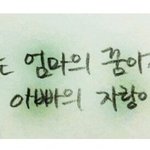 는 엄마의 꿈이
아빠의 자랑이